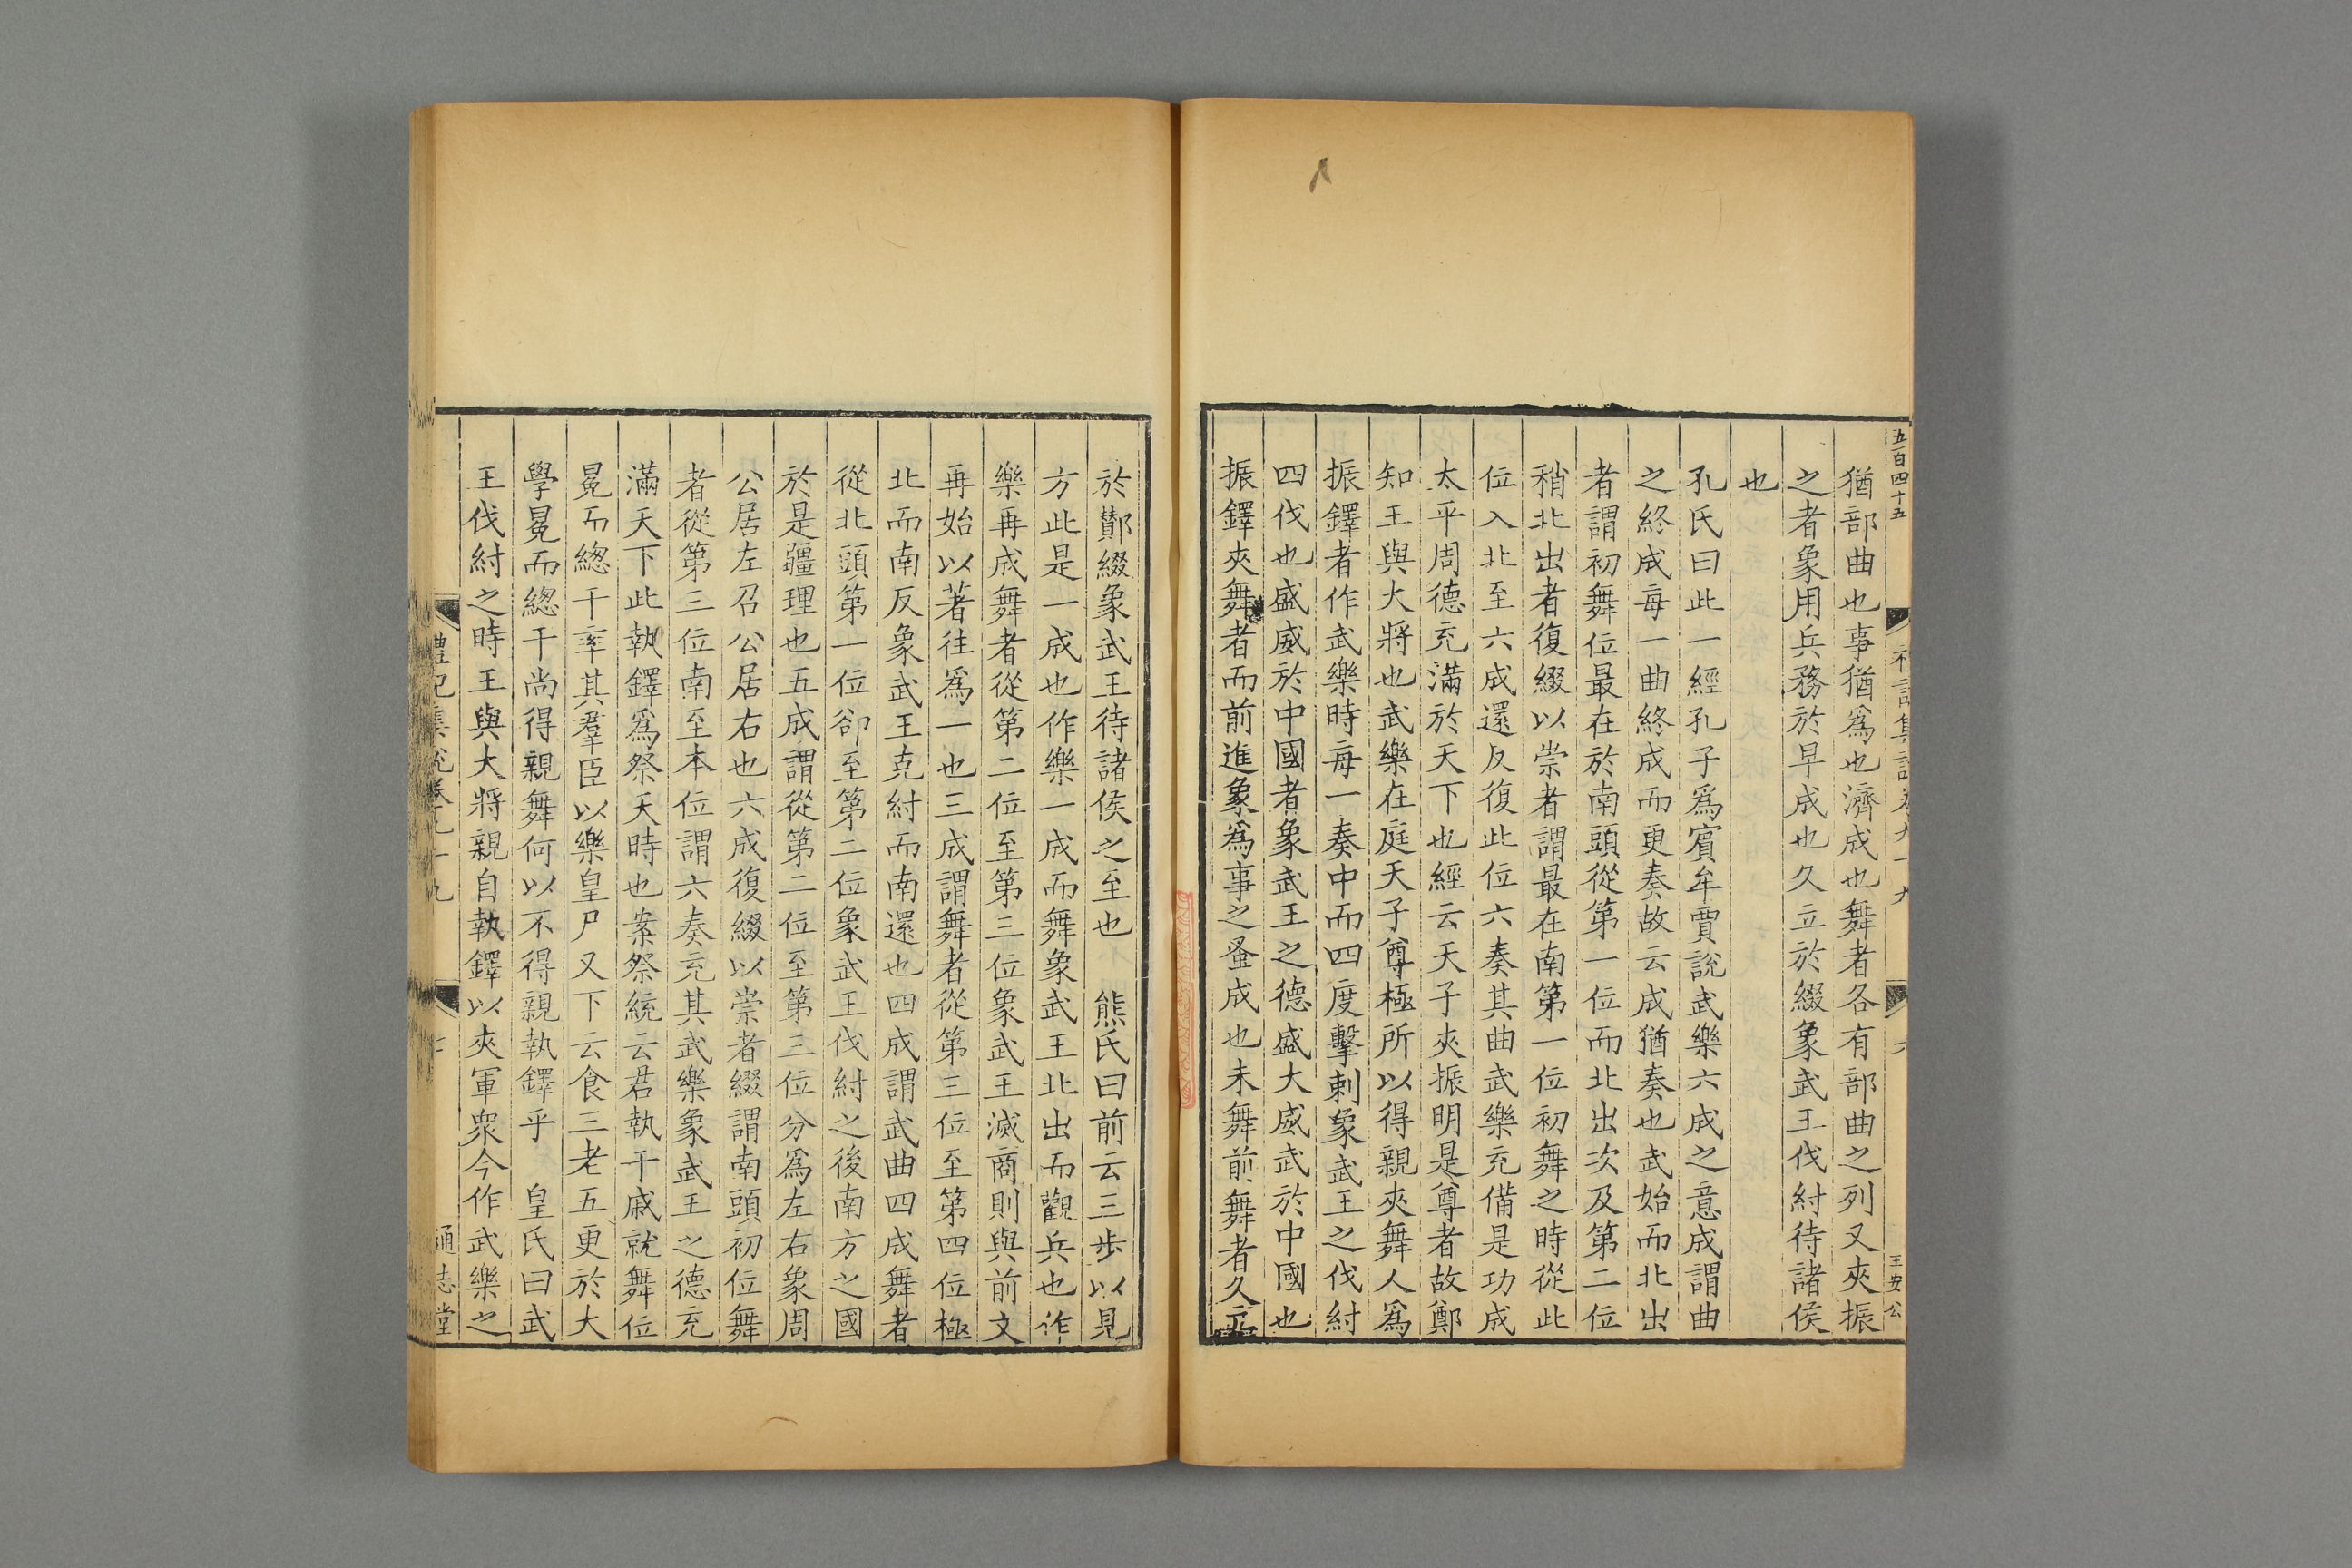 五百四十五
王安公
猶部曲也事猶爲也濟成也舞者各有部曲之列又夾振
之者象用兵務於早成也久立於綴象武王伐紂待諸侯
也
孔氏曰此一經孔子爲賓牟賈說武樂六成之意成謂曲
之終成每一曲終成而更奏故云成猶奏也武始而北出
者謂初舞位最在於南頭從第一位而北出次及第二位
稍北出者復綴以崇者謂最在南第一位初舞之時從此
位入北至六成還反復此位六奏其曲武樂充備是功成
太平周德充滿於天下也經云天子夾振明是尊者故鄭
知王與大將也武樂在庭天子尊極所以得親夾舞人爲
振鐸者作武樂時每一奏中而四度擊刺象武王之伐紂
四伐也盛威於中國者象武王之德盛大威武於中國也
振鐸夾舞者而前進象爲事之蚤成也未舞前舞者久立
於酇綴象武王待諸侯之至也 熊氏曰前云三步以見
方此是一成也作樂一成而舞象武王北出而觀兵也作
樂再成舞者從第二位至第三位象武王滅商則與前文
再始以著往爲一也三成謂舞者從第三位至第四位極
北而南反象武王克紂而南還也四成謂武曲四成舞者
從北頭第一位卻至第二位象武王伐紂之後南方之國
於是疆理也五成謂從第二位至第三位分爲左右象周
公居左召公居右也六成復綴以崇者綴謂南頭初位舞
者從第三位南至本位謂六奏充其武樂象武王之德充
滿天下此執鐸爲祭天時也案祭統云君執干戚就舞位
冕而總干率其羣臣以樂皇尸又下云食三老五更於大
學冕而總干尚得親舞何以不得親執鐸乎 皇氏曰武
王伐紂之時王與大將親自執鐸以夾軍衆今作武樂之
禮記集說卷九十九
七
通志堂